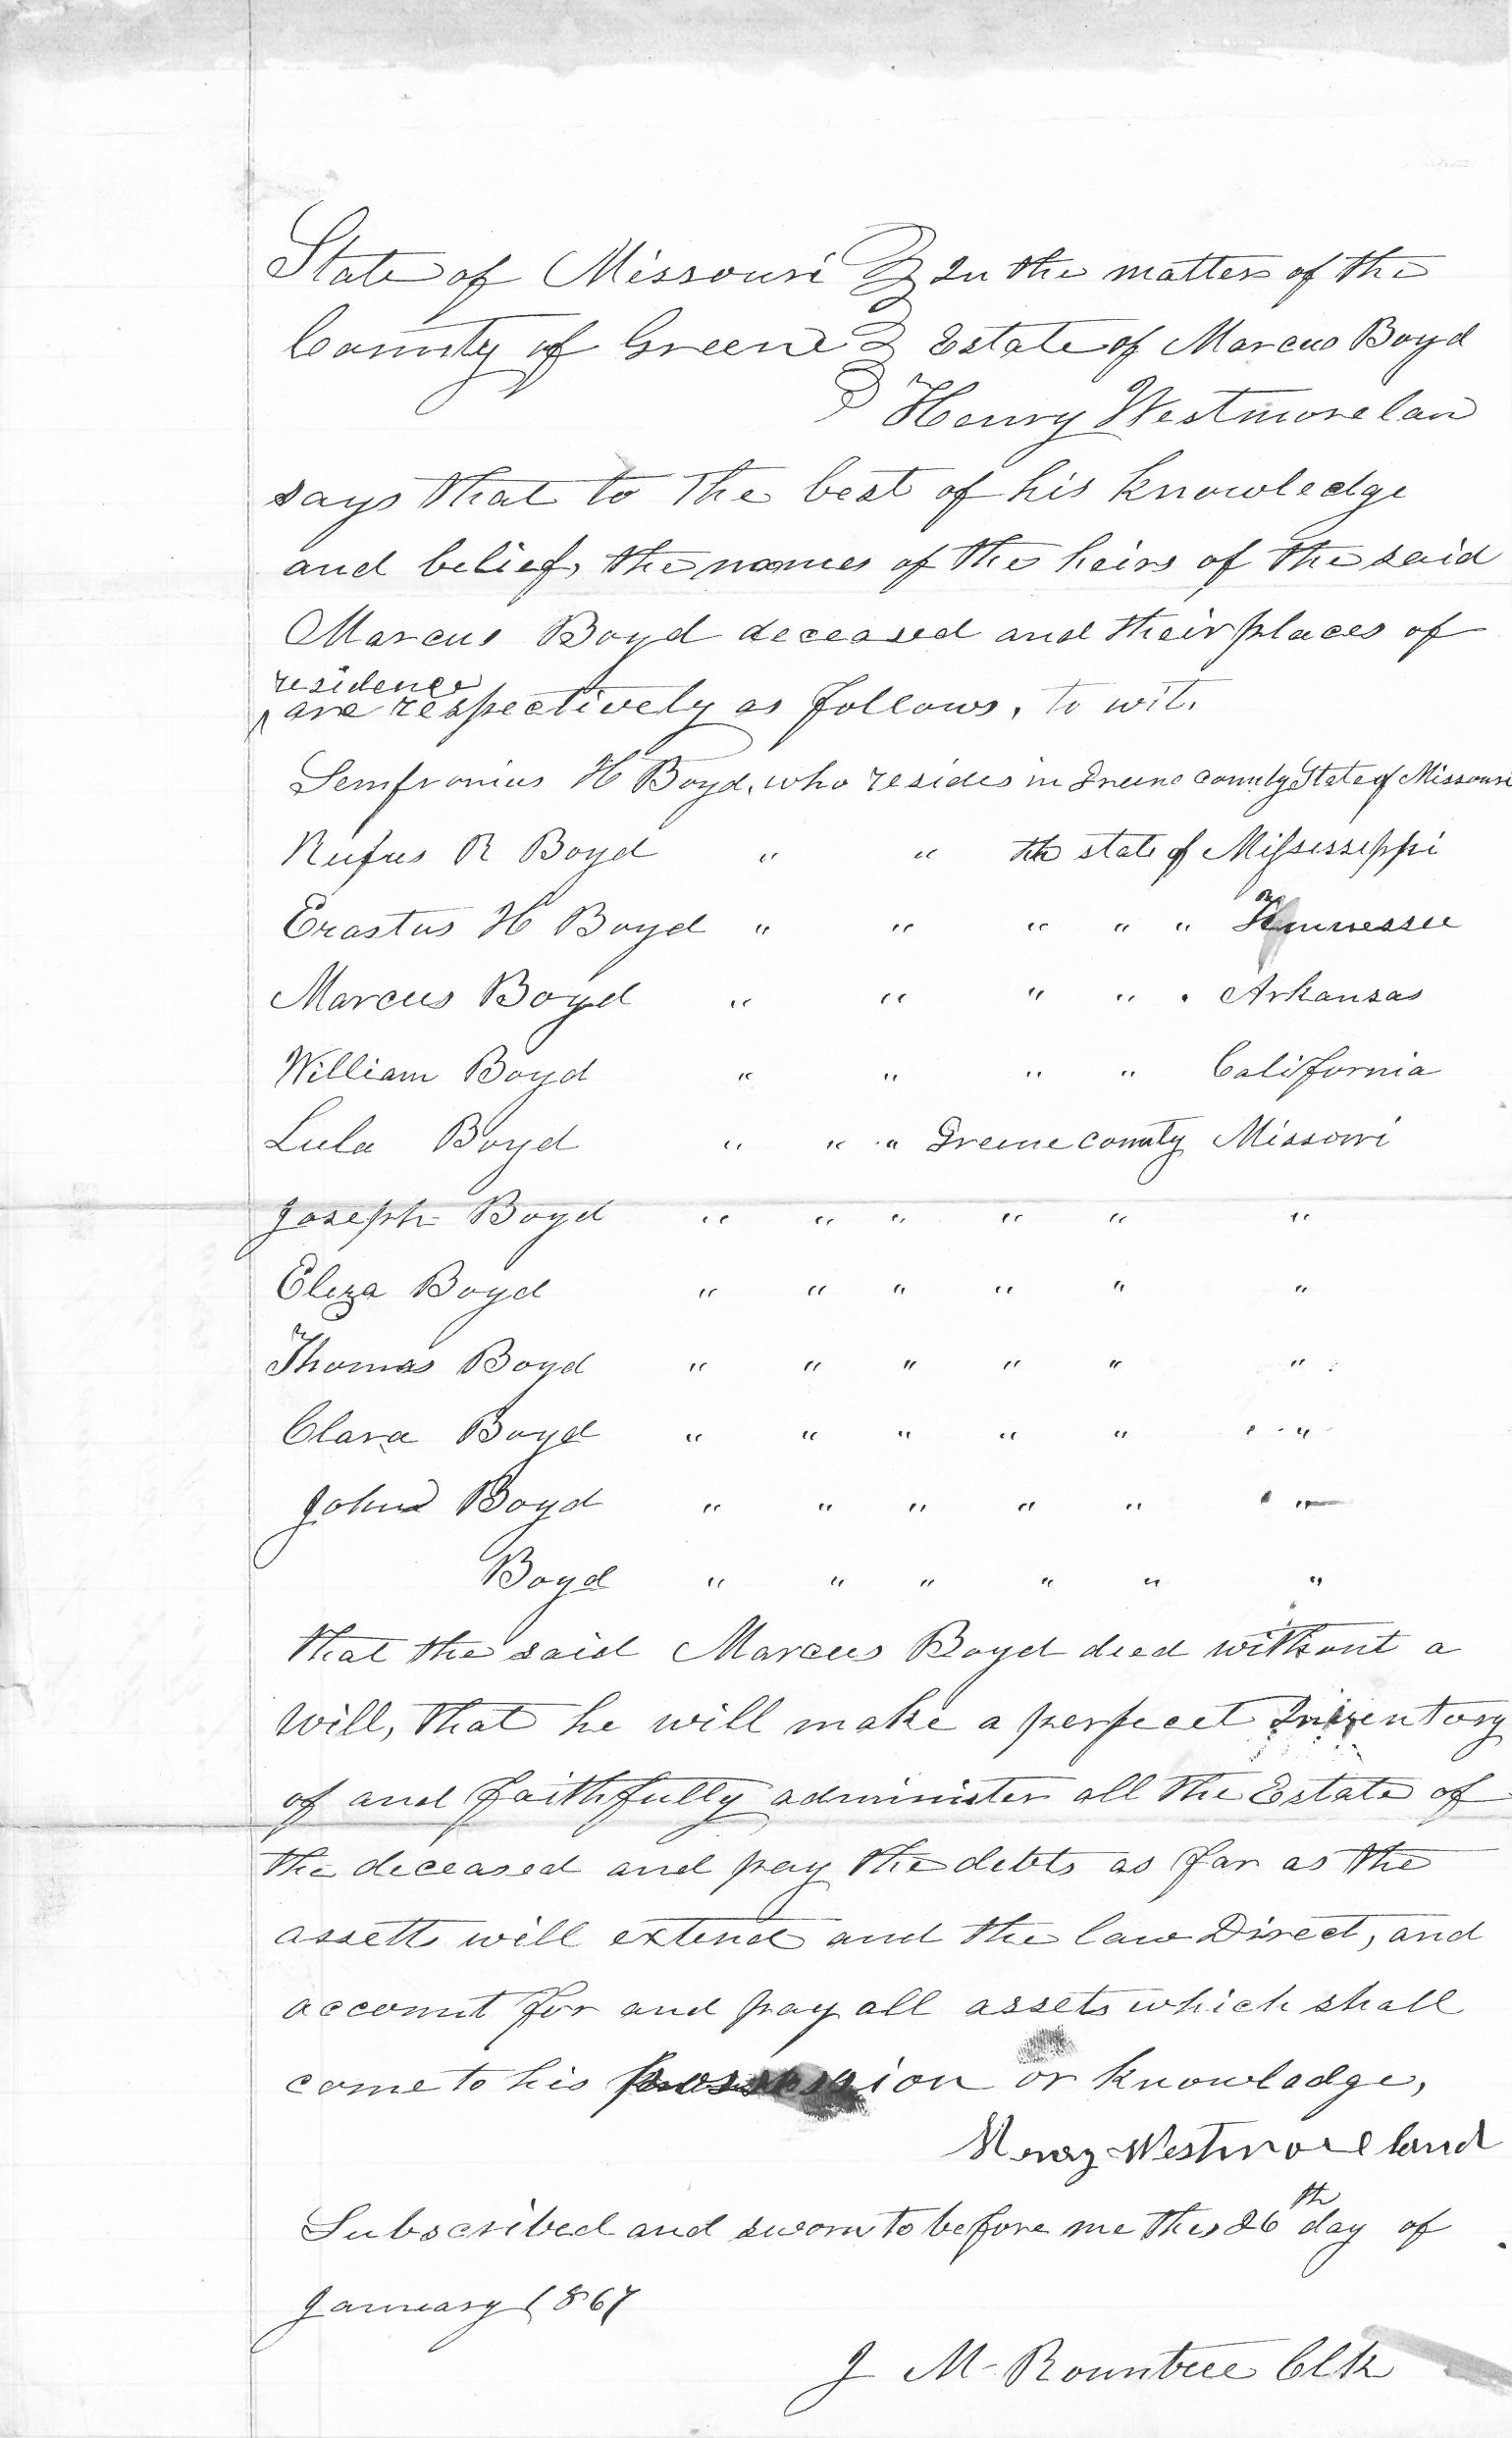 State of Missouri } In the matter of the
County of Greene } Estate of Marcus Boyd
} Henry Westmorelan
says that to the best of his knowledge
and belief, the names of the heirs of the said
Marcus Boyd deceased and their places of
residence
^ are respectively as follows, to wit.
Semfronius H Boyd, who resides in Greene County State of Missouri
Rufus R Boyd " " the state of Mississippi
Erastus H Boyd " " " " " Tennessee
Marcus Boyd " " " " " Arkansas
William Boyd " " " " California
Lula Boyd " " " Greene County Missouri
Joseph Boyd " " " " " "
Eliza Boyd " " " " " "
Thomas Boyd " " " " " "
Clara Boyd " " " " " "
John Boyd " " " " " "
Boyd " " " " " "
that the said Marcus Boyd died without a
will, that he will make a perfect Inventory
of and faithfully administer all the Estate of
the deceased and pay the debts as far as the
assetts will extend and the law Direct, and
account for and pay all assets which shall
come to his possession or knowledge,
Henry Westmoreland
Subscribed and sworn to before me this 26th day of
January 1867
J M Rountree Clk